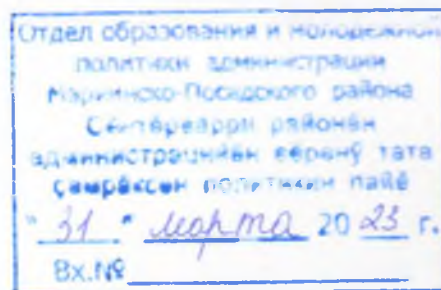 Отдел образования и молодежной
политики администрации
Мариинско-Посадского района
Сӗнтӗрвӑрри районӗн
администрацийӗн вӗренӳ тата
ҫамрӑксен политикин пайӗ
"31" марта 2023 г.
Вх.№